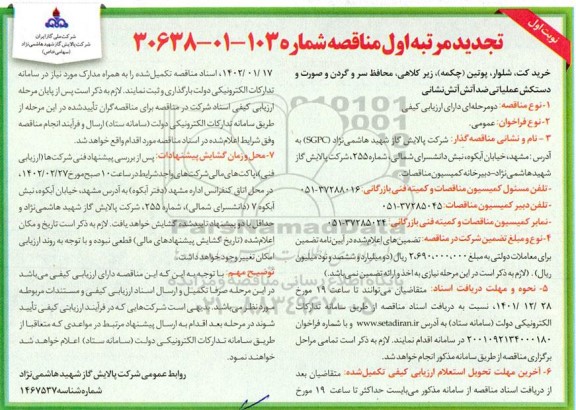 نوبت اول
تجدید مرتبه اول مناقصه شماره ۱۰۳-۰۱-۳۰۶۳۸
شرکت ملی گاز ایران
شرکت پالایش گاز شهید هاشمی‌نژاد
(سهامی خاص)
خرید کت، شلوار، پوتین (چکمه)، زیر کلاهی، محافظ سر و گردن و صورت و
دستکش عملیاتی ضد آتش آتش‌نشانی
۱-نوع مناقصه: دو مرحله‌ای دارای ارزیابی کیفی
۲-نوع فراخوان: عمومی.
۳- نام و نشانی مناقصه‌گذار: شرکت پالایش گاز شهید هاشمی‌نژاد (SGPC) به
آدرس: مشهد، خیابان آبکوه، نبش دانشسرای شمالی، شماره ۲۵۵، شرکت پالایش گاز
شهید هاشمی‌نژاد-دبیرخانه کمیسیون مناقصات.
-تلفن مسئول کمیسیون مناقصات و کمیته فنی بازرگانی ۳۷۲۸۸۰۱۶-۰۵۱
-تلفن دبیر کمیسیون مناقصات: ۳۷۲۸۵۰۴۵-۰۵۱
-نمابر کمیسیون مناقصات و کمیته فنی بازرگانی: ۳۷۲۸۵۰۲۴-۰۵۱
۴-نوع و مبلغ تضمین شرکت در مناقصه: تضمین‌های اعلام‌شده در آیین‌نامه تضمین
برای معاملات دولتی به مبلغ ۲,۶۹۰,۰۰۰,۰۰۰ ریال (دو میلیارد و ششصد و نود میلیون
ریال). (لازم به ذکر است در این مرحله نیازی به اخذ و ارائه تضمین نمی‌باشد.)
۵- نحوه و مهلت دریافت اسناد: متقاضیان می‌توانند تا ساعت ۱۹ مورخ
۱۴۰۱/۱۲/۲۸، نسبت به دریافت اسناد مناقصه از طریق سامانه تدارکات
الکترونیکی دولت (سامانه ستاد) به آدرس www.setadiran.ir و با شماره فراخوان
۲۰۰۱۰۹۲۱۳۴۰۰۰۱۸۰ در سامانه اقدام نمایند. لازم به ذکر است تمامی مراحل
برگزاری مناقصه از طریق سامانه مذکور انجام خواهد شد.
۶- آخرین مهلت تحویل استعلام ارزیابی کیفی تکمیل‌شده: متقاضیان بعد
از دریافت اسناد مناقصه از سامانه مذکور می‌بایست حداکثر تا ساعت ۱۹ مورخ
۱۴۰۲/۰۱/۱۷، اسناد مناقصه تکمیل‌شده را به همراه مدارک مورد نیاز در سامانه
تدارکات الکترونیکی دولت بارگذاری و ثبت نمایند. لازم به ذکر است پس از پایان مرحله
ارزیابی کیفی اسناد شرکت در مناقصه برای مناقصه‌گران تأییدشده در این مرحله از
طریق سامانه تدارکات الکترونیکی دولت (سامانه ستاد) ارسال و فرآیند انجام مناقصه
وفق شرایط اعلام‌شده در اسناد مناقصه مورد اقدام واقع خواهد شد.
۷-محل و زمان گشایش پیشنهادات: پس از بررسی پیشنهاد فنی شرکت‌ها (ارزیابی
فنی) پاکت‌های مالی شرکت‌های واجد شرایط در ساعت ۱۰ صبح مورخ ۱۴۰۲/۰۲/۲۷،
در محل اتاق کنفرانس اداره مشهد (دفتر آبکوه) به آدرس مشهد، خیابان آبکوه، نبش
آبکوه ۷ (دانشسرای شمالی)، شماره ۲۵۵، شرکت پالایش گاز شهید هاشمی‌نژاد و
حداقل با دو پیشنهاد تاییدشده گشایش خواهد یافت. لازم به ذکر است تاریخ و مکان
اعلام‌شده (تاریخ گشایش پیشنهادهای مالی) قطعی نبوده و با توجه به روند ارزیابی
امکان تغییر وجود خواهد داشت.
توضیح مهم: با توجه به این که این مناقصه دارای ارزیابی کیفی می‌باشد
در این مرحله صرفاً تکمیل و ارسال اسناد ارزیابی کیفی و مستندات مربوطه
مورد نظر می‌باشد. بدیهی است شرکت‌هایی که در فرآیند ارزیابی کیفی تأیید
شوند در مرحله بعد اقدام به ارسال پیشنهاد مرتبط در مواعدی که متعاقباً از
طریق سامانه تدارکات الکترونیکی دولت (سامانه ستاد) اعلام خواهد شد
خواهند نمود.
روابط عمومی شرکت پالایش گاز شهید هاشمی‌نژاد
شماره شناسه ۱۴۶۷۵۳۷